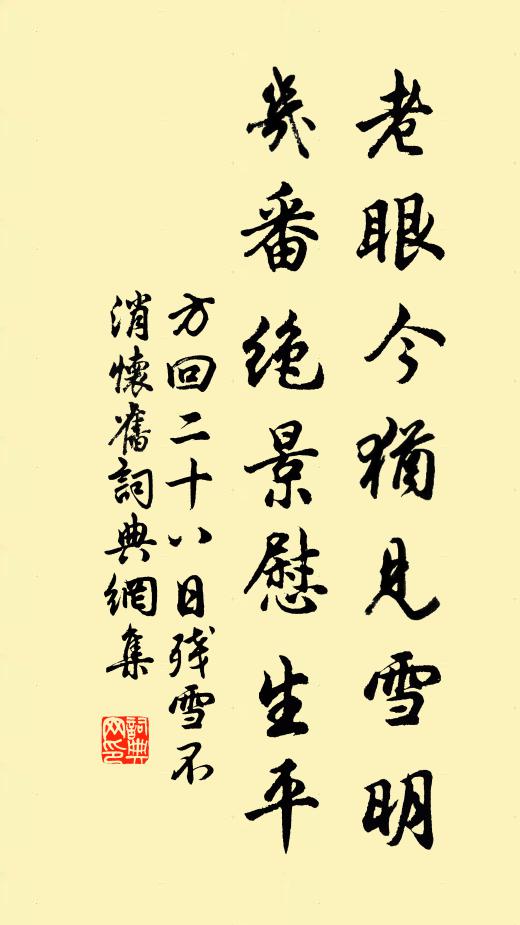 老眼今猶見雪明
幾番绝景慰生平
方回二十八日残雪不
消懷舊詞典網集
詞典
网印